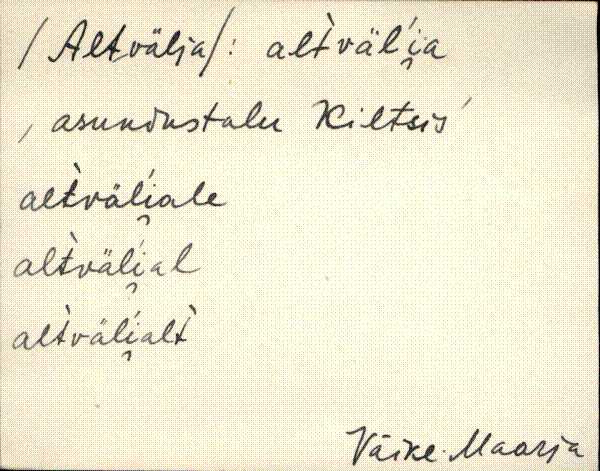 /Altvälja/: alt̀väl'i̯a
, asundustalu Kiltsis'
alt̀väl'i̯ale
alt̀väl'i̯al
alt̀väl'i̯alt̀
Väike-Maarja